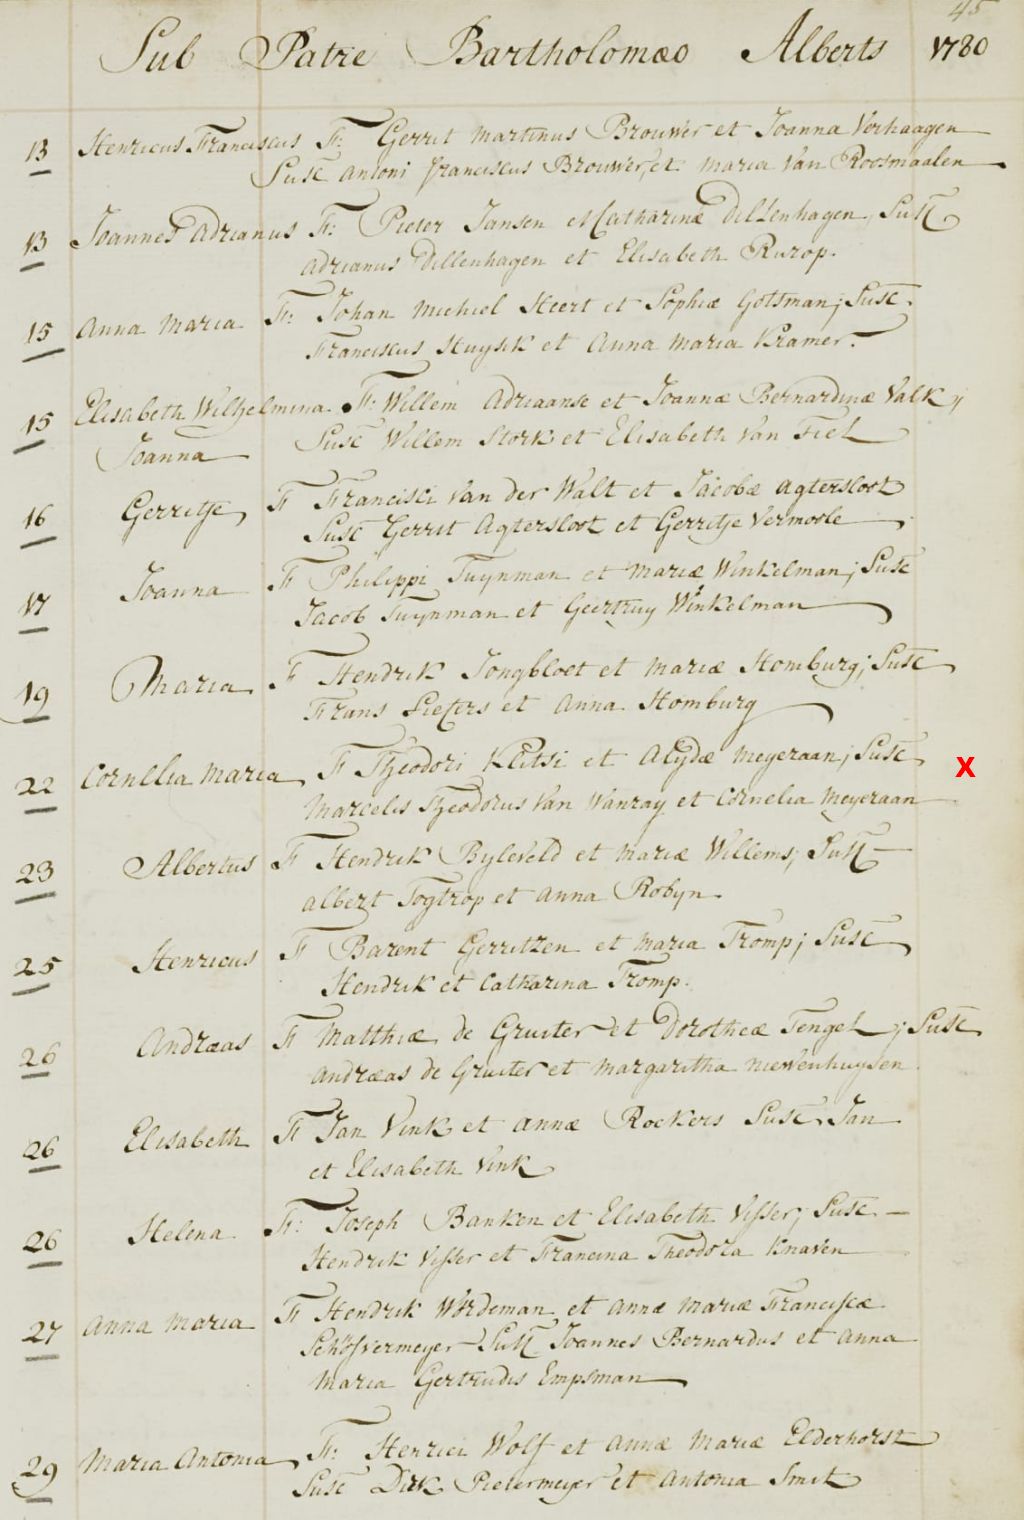 45
Sub Patre Bartholomæo Alberts 1780
13 Henricus Franciscus F: Gerrit Martinus Brouwer et Joanna Verhaagen
Susc Antoni Franciscus Brouwer, et Maria Van Roosmaalen
13 Joannes Adrianus F: Pieter Jansen et Catharinæ Dillenhagen, Susc
Adrianus Dillenhagen et Elisabeth Rurop.
15 Anna Maria F: Johan Michiel Heert et Sophiæ Gotsman; Susc
Franciscus Huysik et Anna Maria Kramer.
15 Elisabeth Wilhelmina F: Willem Adriaanse et Joannæ Bernardinæ Valk;
Joanna Susc Willem Stork et Elisabeth Van Tiel
16 Gerritje F Francisci Van der Walt et Jacobæ Agtersloot
Susc Gerrit Agtersloot et Gerritje Vermoole
17 Joanna F Philippi Tuynman et Mariæ Winkelman; Susc
Jacob Tuynman et Geertruy Winkelman
19 Maria F Hendrik Jongbloet et Mariæ Homburg; Susc
Frans Pieters et Anna Homburg
22 Cornelia Maria F Theodori Klitsi et Alydæ Meyeraan; Susc X
Marcelis Theodorus Van Wanray et Cornelia Meyeraan
23 Albertus F Hendrik Byleveld et Mariæ Willems; Susc
Albert Togtrop et Anna Robyn
25 Henricus F Barent Gerritzen et Maria Tromp; Susc
Hendrik et Catharina Tromp.
26 Andræas F Matthiæ de Gruiter et Dorotheæ Tengel; Susc
Andræas de Gruiter et Margaritha Niewenhuysen
26 Elisabeth F Jan Vink et Annæ Rockers Susc Jan
et Elisabeth Vink
26 Helena F: Joseph Banken et Elisabeth Visser; Susc
Hendrik Visser et Francina Theodora Knaven
27 Anna Maria F Hendrik Wördeman et Annæ Mariæ Franciscæ
Susc Joannes Bernardus et Anna
Maria Gertrudis Empsman
29 Maria Antonia F: Henrici Wolf et Annæ Mariæ Elderhorst
Susc Dirk Pietermeyer et Antonia Smit